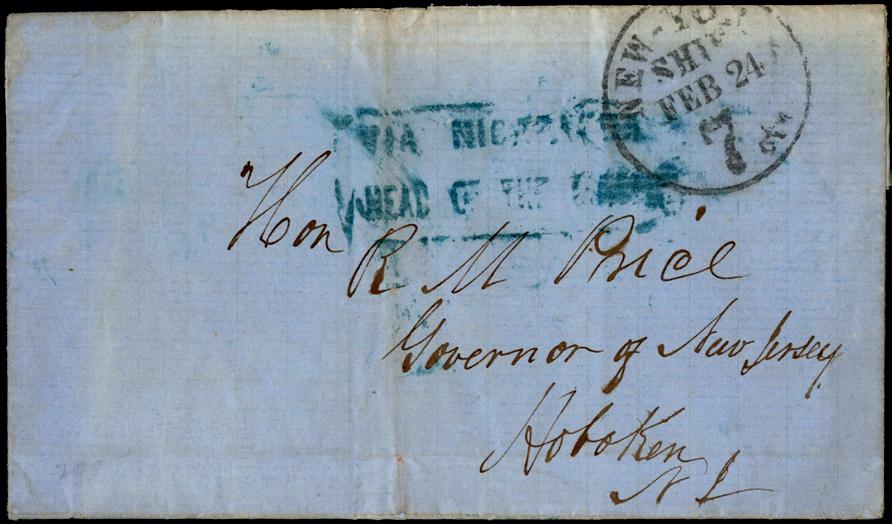 NEW-YORK
SHIP
FEB 24
7 cts
VIA NICARAGUA
AHEAD OF THE MAILS
Hon
R M Price
Governor of New Jersey
Hoboken
N J